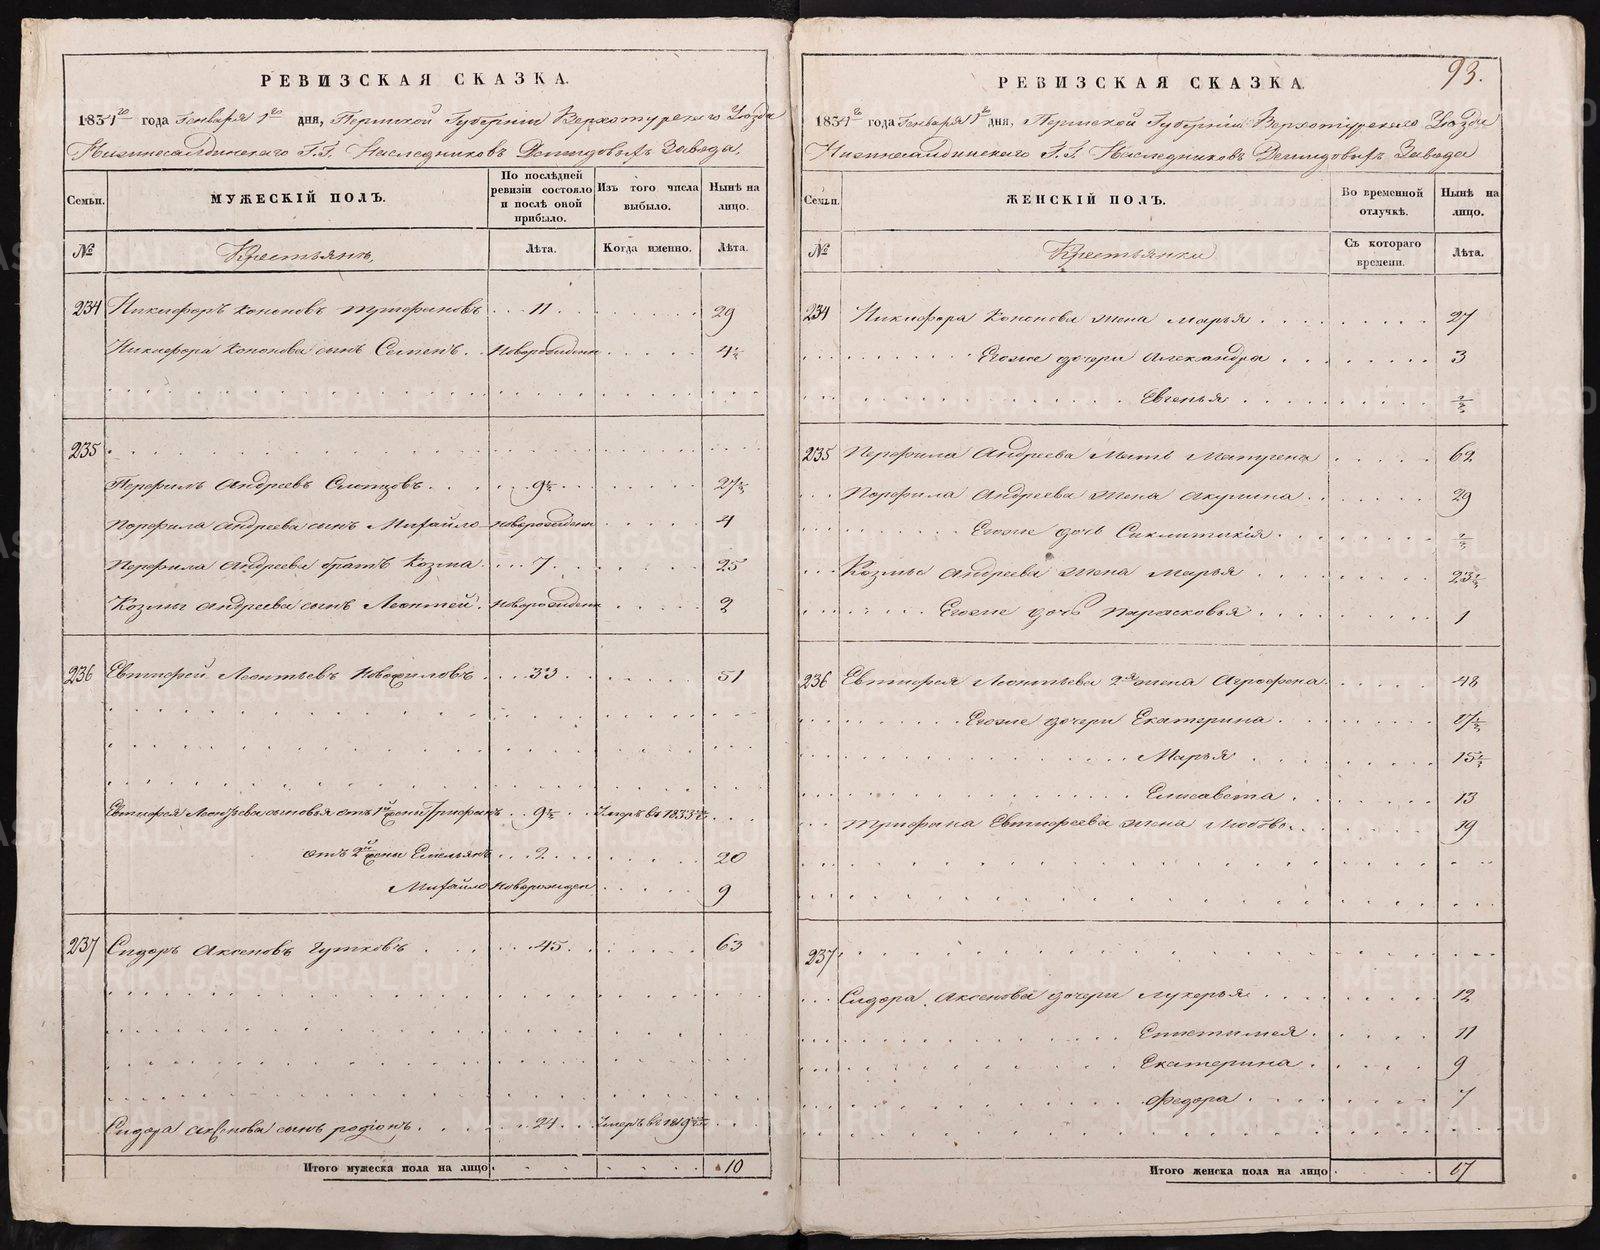 РЕВИЗСКАЯ СКАЗКА.
1834го года Генваря 1го дня, Пермской Губерніи Верхотурскаго Уѣзда
Нижнесалдинскаго Г.Г. Наслѣдниковъ Демидовыхъ Завода.
Семьи.
МУЖЕСКІЙ ПОЛЪ.
По послѣдней ревизіи состояло и послѣ оной прибыло.
Изъ того числа выбыло.
Нынѣ на лицо.
№
Крестьянъ,
Лѣта.
Когда именно.
Лѣта.
234 Никифоръ Кононовъ Трифановъ 11 29
Никифора Кононова сынъ Семенъ Новорожденъ 4½
235
Перфилъ Андреевъ 9½ 27½
Перфила Андреева сынъ Михайло Новорожденъ 4
Перфила Андреева братъ Козма 7 25
Козмы Андреева сынъ Леонтей Новорожденъ 2
236 Евтифей Леонтьевъ 33 51
Евтифея Леонтьева сыновья отъ 1й жены Трифанъ 9½ Умеръ въ 1833мъ
отъ 2й жены Емельянъ 2 20
Михайло Новорожден 9
237 Сидоръ Аксеновъ Гутковъ 45 63
Сидора Аксенова сынъ Родіонъ 24 Умеръ въ 1819мъ
Итого мужеска пола на лицо 10
93.
РЕВИЗСКАЯ СКАЗКА.
1834го года Генваря 1го дня, Пермской Губерніи Верхотурскаго Уѣзда
Нижнесалдинскаго Г.Г. Наслѣдниковъ Демидовыхъ Завода
Семьи.
ЖЕНСКІЙ ПОЛЪ.
Во временной отлучкѣ.
Нынѣ на лицо.
№
Крестьянки
Съ котораго времени.
Лѣта.
234 Никифора Кононова жена Марья 27
Егоже дочери Александра 3
Евгенья ½
235 Перфила Андреева Мать Матрена 62
Перфила Андреева жена Акулина 29
Егоже дочь Сиклитикія ½
Козмы Андреева жена Марья 23½
Егоже дочь Парасковья 1
236 Евтифея Леонтьева 2я жена Агрофена 48
Егоже дочери Екатерина 17½
Марья 15½
Елисавета 13
Трифана Евтифеева жена Любовь 19
237
Сидора Аксенова дочери Лукерья 12
Епистимея 11
Екатерина 9
Федора 7
Итого женска пола на лицо 17
METRIKI.GASO-URAL.RU